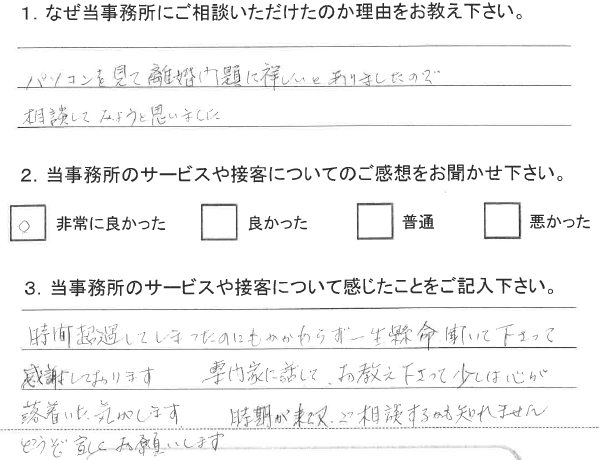 1. なぜ当事務所にご相談いただけたのか理由をお教え下さい。
パソコンを見て離婚問題に詳しいとありましたので
相談してみようと思いました
2. 当事務所のサービスや接客についてのご感想をお聞かせ下さい。
○ 非常に良かった 良かった 普通 悪かった
3. 当事務所のサービスや接客について感じたことをご記入下さい。
時間超過してしまったのにもかかわらず一生懸命聞いて下さって
感謝しております 専門家に話して、お教え下さって少しは心が
落着いた気がします 時期が来て又、ご相談するかも知れません
どうぞ宜しくお願いします